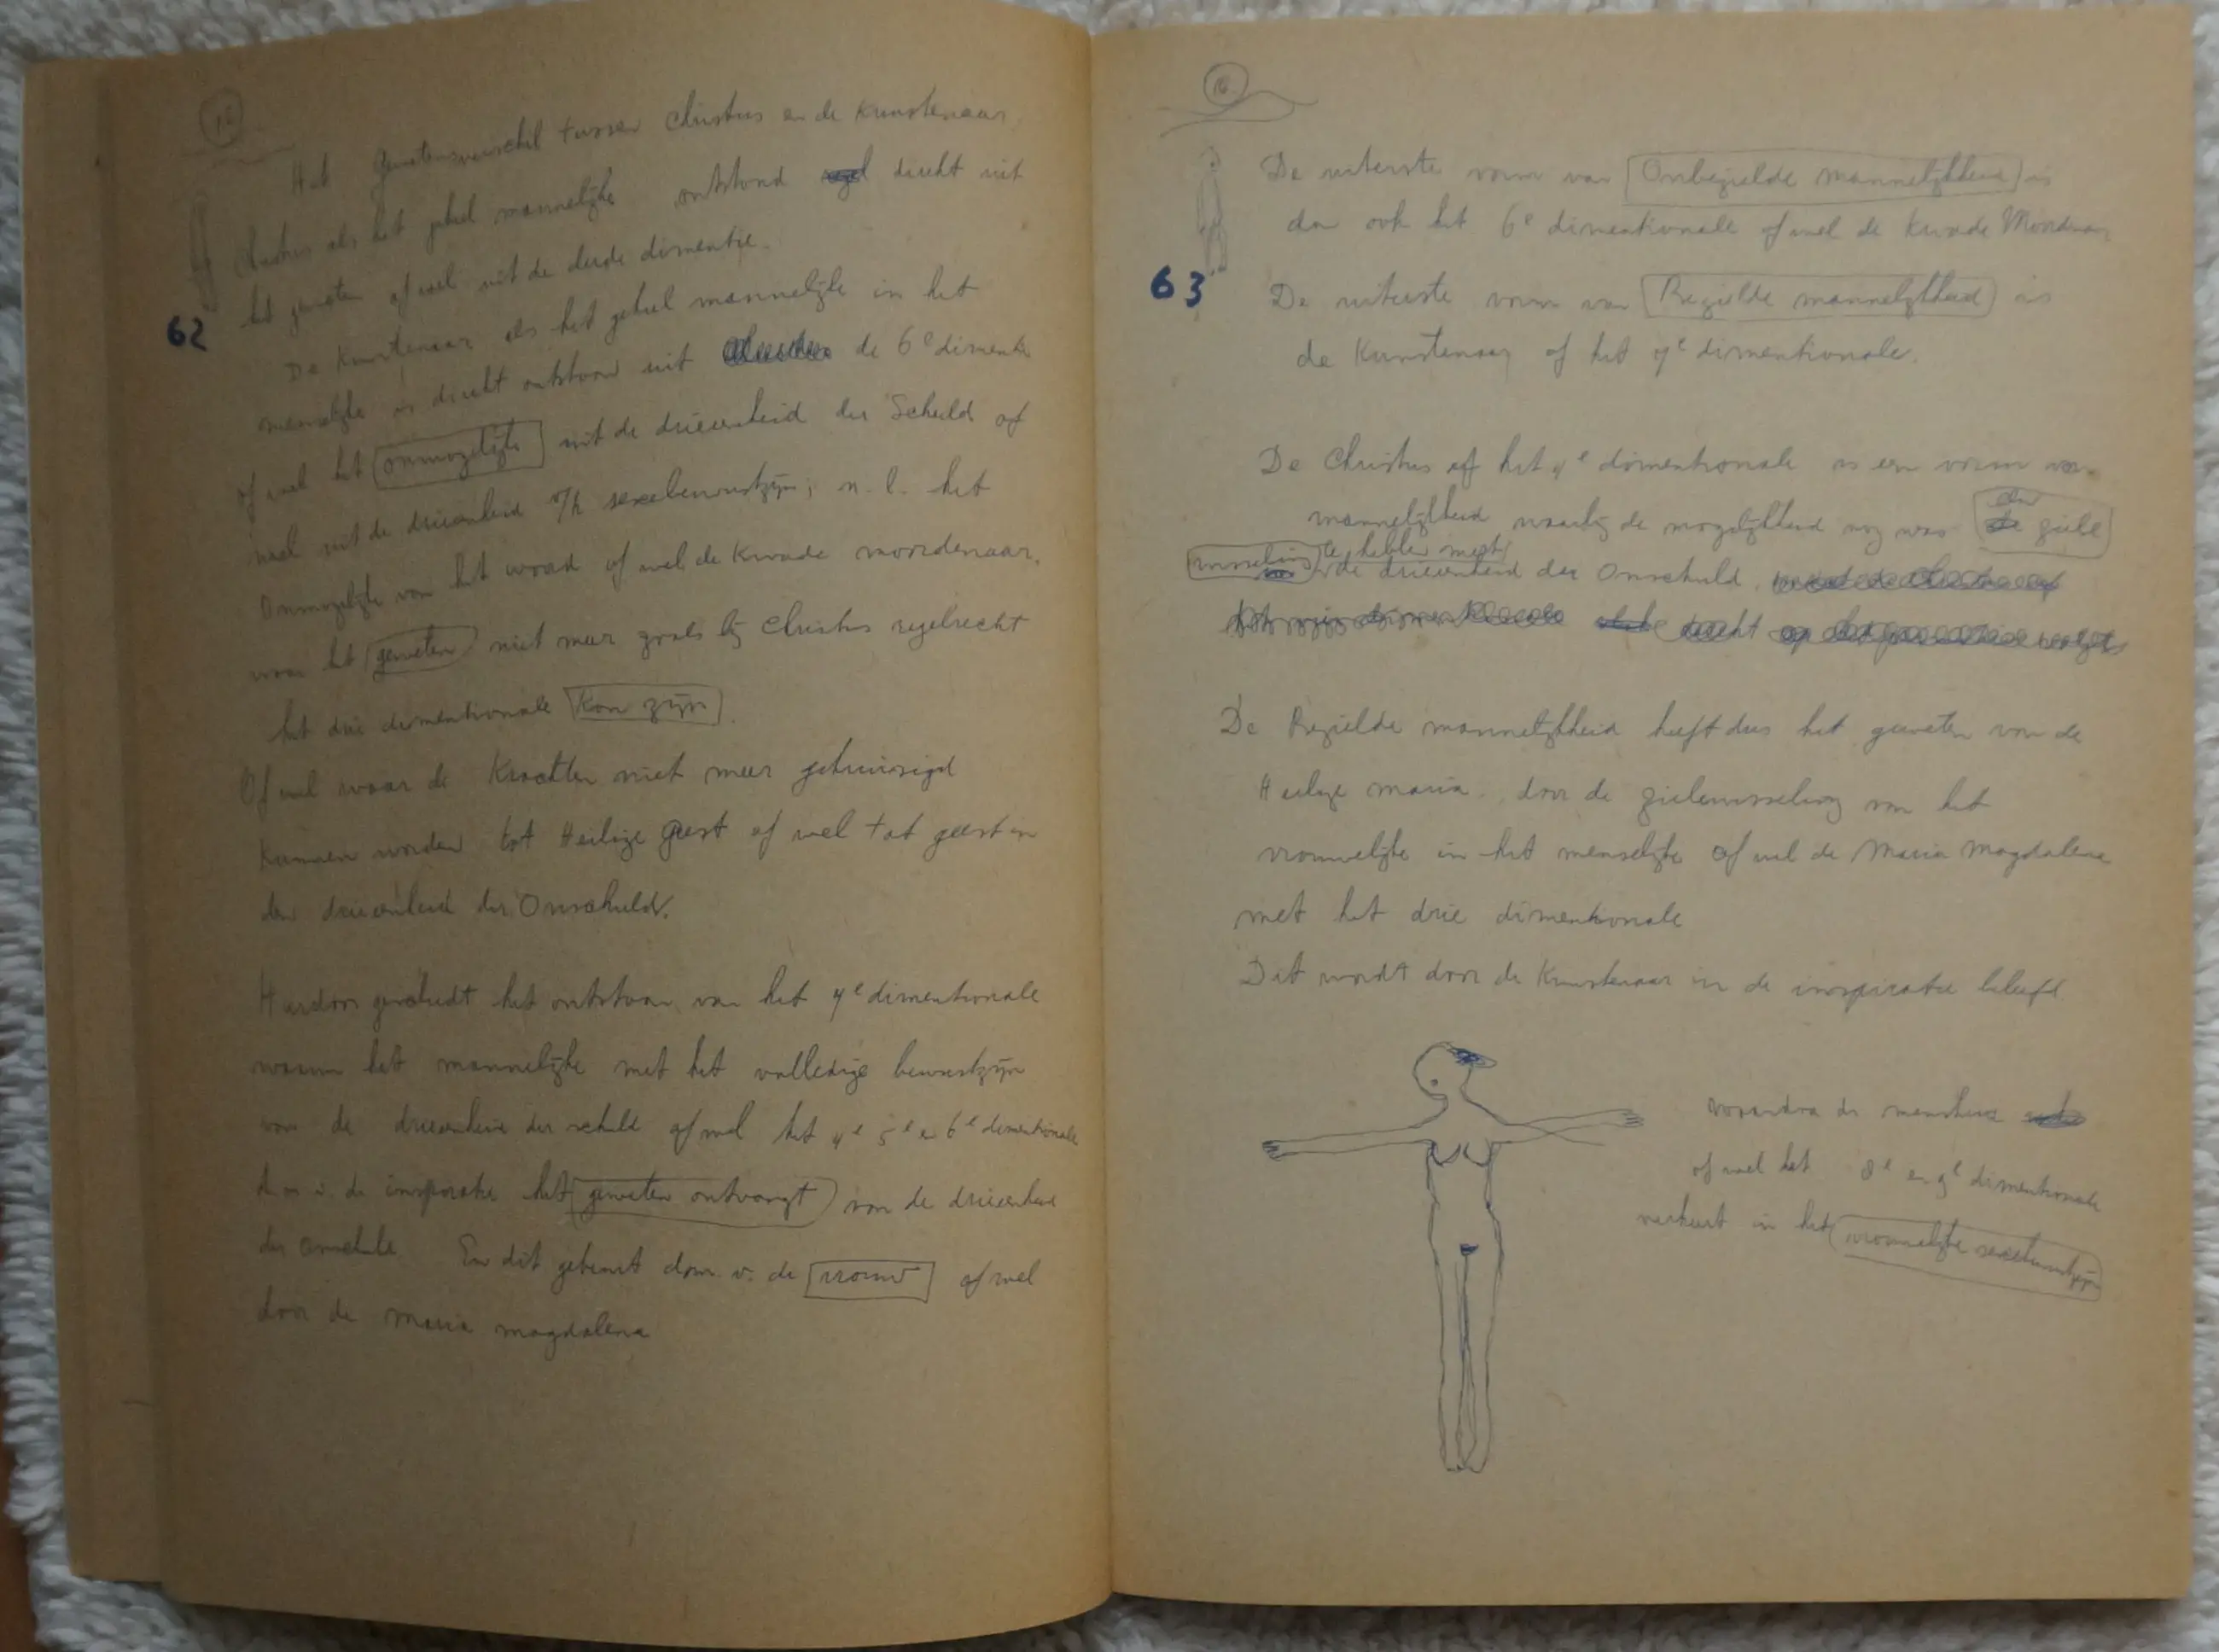 16
Het gewetensverschil tussen Christus en de Kunstenaar.
Christus als het geheel mannelijke ontstond direkt uit
het geweten ofwel uit de derde dimentie.
62
De Kunstenaar als het geheel mannelijke in het
menselijke is direkt ontstaan uit de 6e dimentie
of wel het onmogelijke uit de drieeenheid der Schuld of
wel uit de drieeenheid v/h sexebewustzijn; n.l. het
Onmogelijke van het woord of wel de Kwade moordenaar.
waar het geweten niet meer zoals bij Christus regelrecht
het drie dimentionale kon zijn.
Of wel waar de Krachten niet meer
kunnen worden tot Heilige Geest of wel tot geest in
den drieeenheid der Onschuld.
Hierdoor geschiedt het ontstaan van het 7e dimentionale
waarin het mannelijke met het volledige bewustzijn
van de drieeenheid der schuld of wel het 4e 5e en 6e dimentionale
d.m.v. de inspiratie het geweten ontvangt van de drieeenheid
der onschuld. En dit gebeurt d.m.v. de vrouw of wel
door de Maria Magdalena
16
De uiterste vorm van Onbezielde mannelijkheid is
dan ook het 6e dimentionale of wel de Kwade Moordenaar
63
De uiterste vorm van Bezielde mannelijkheid is
de Kunstenaar of het 7e dimentionale.
De Christus of het 4e dimentionale is een vorm van
mannelijkheid waarbij de mogelijkheid nog was den ziele
wisseling te hebben met de drieeenheid der Onschuld.
De Bezielde mannelijkheid heeft dus het geweten van de
Heilige Maria. door de zielewisseling van het
vrouwelijke in het menselijke of wel de Maria Magdalena
met het drie dimentionale
Dit wordt door de Kunstenaar in de inspiratie beleefd
waardoor de
of wel het 8e en 9e dimentionale
verkeert in het vrouwelijke sexebewustzijn